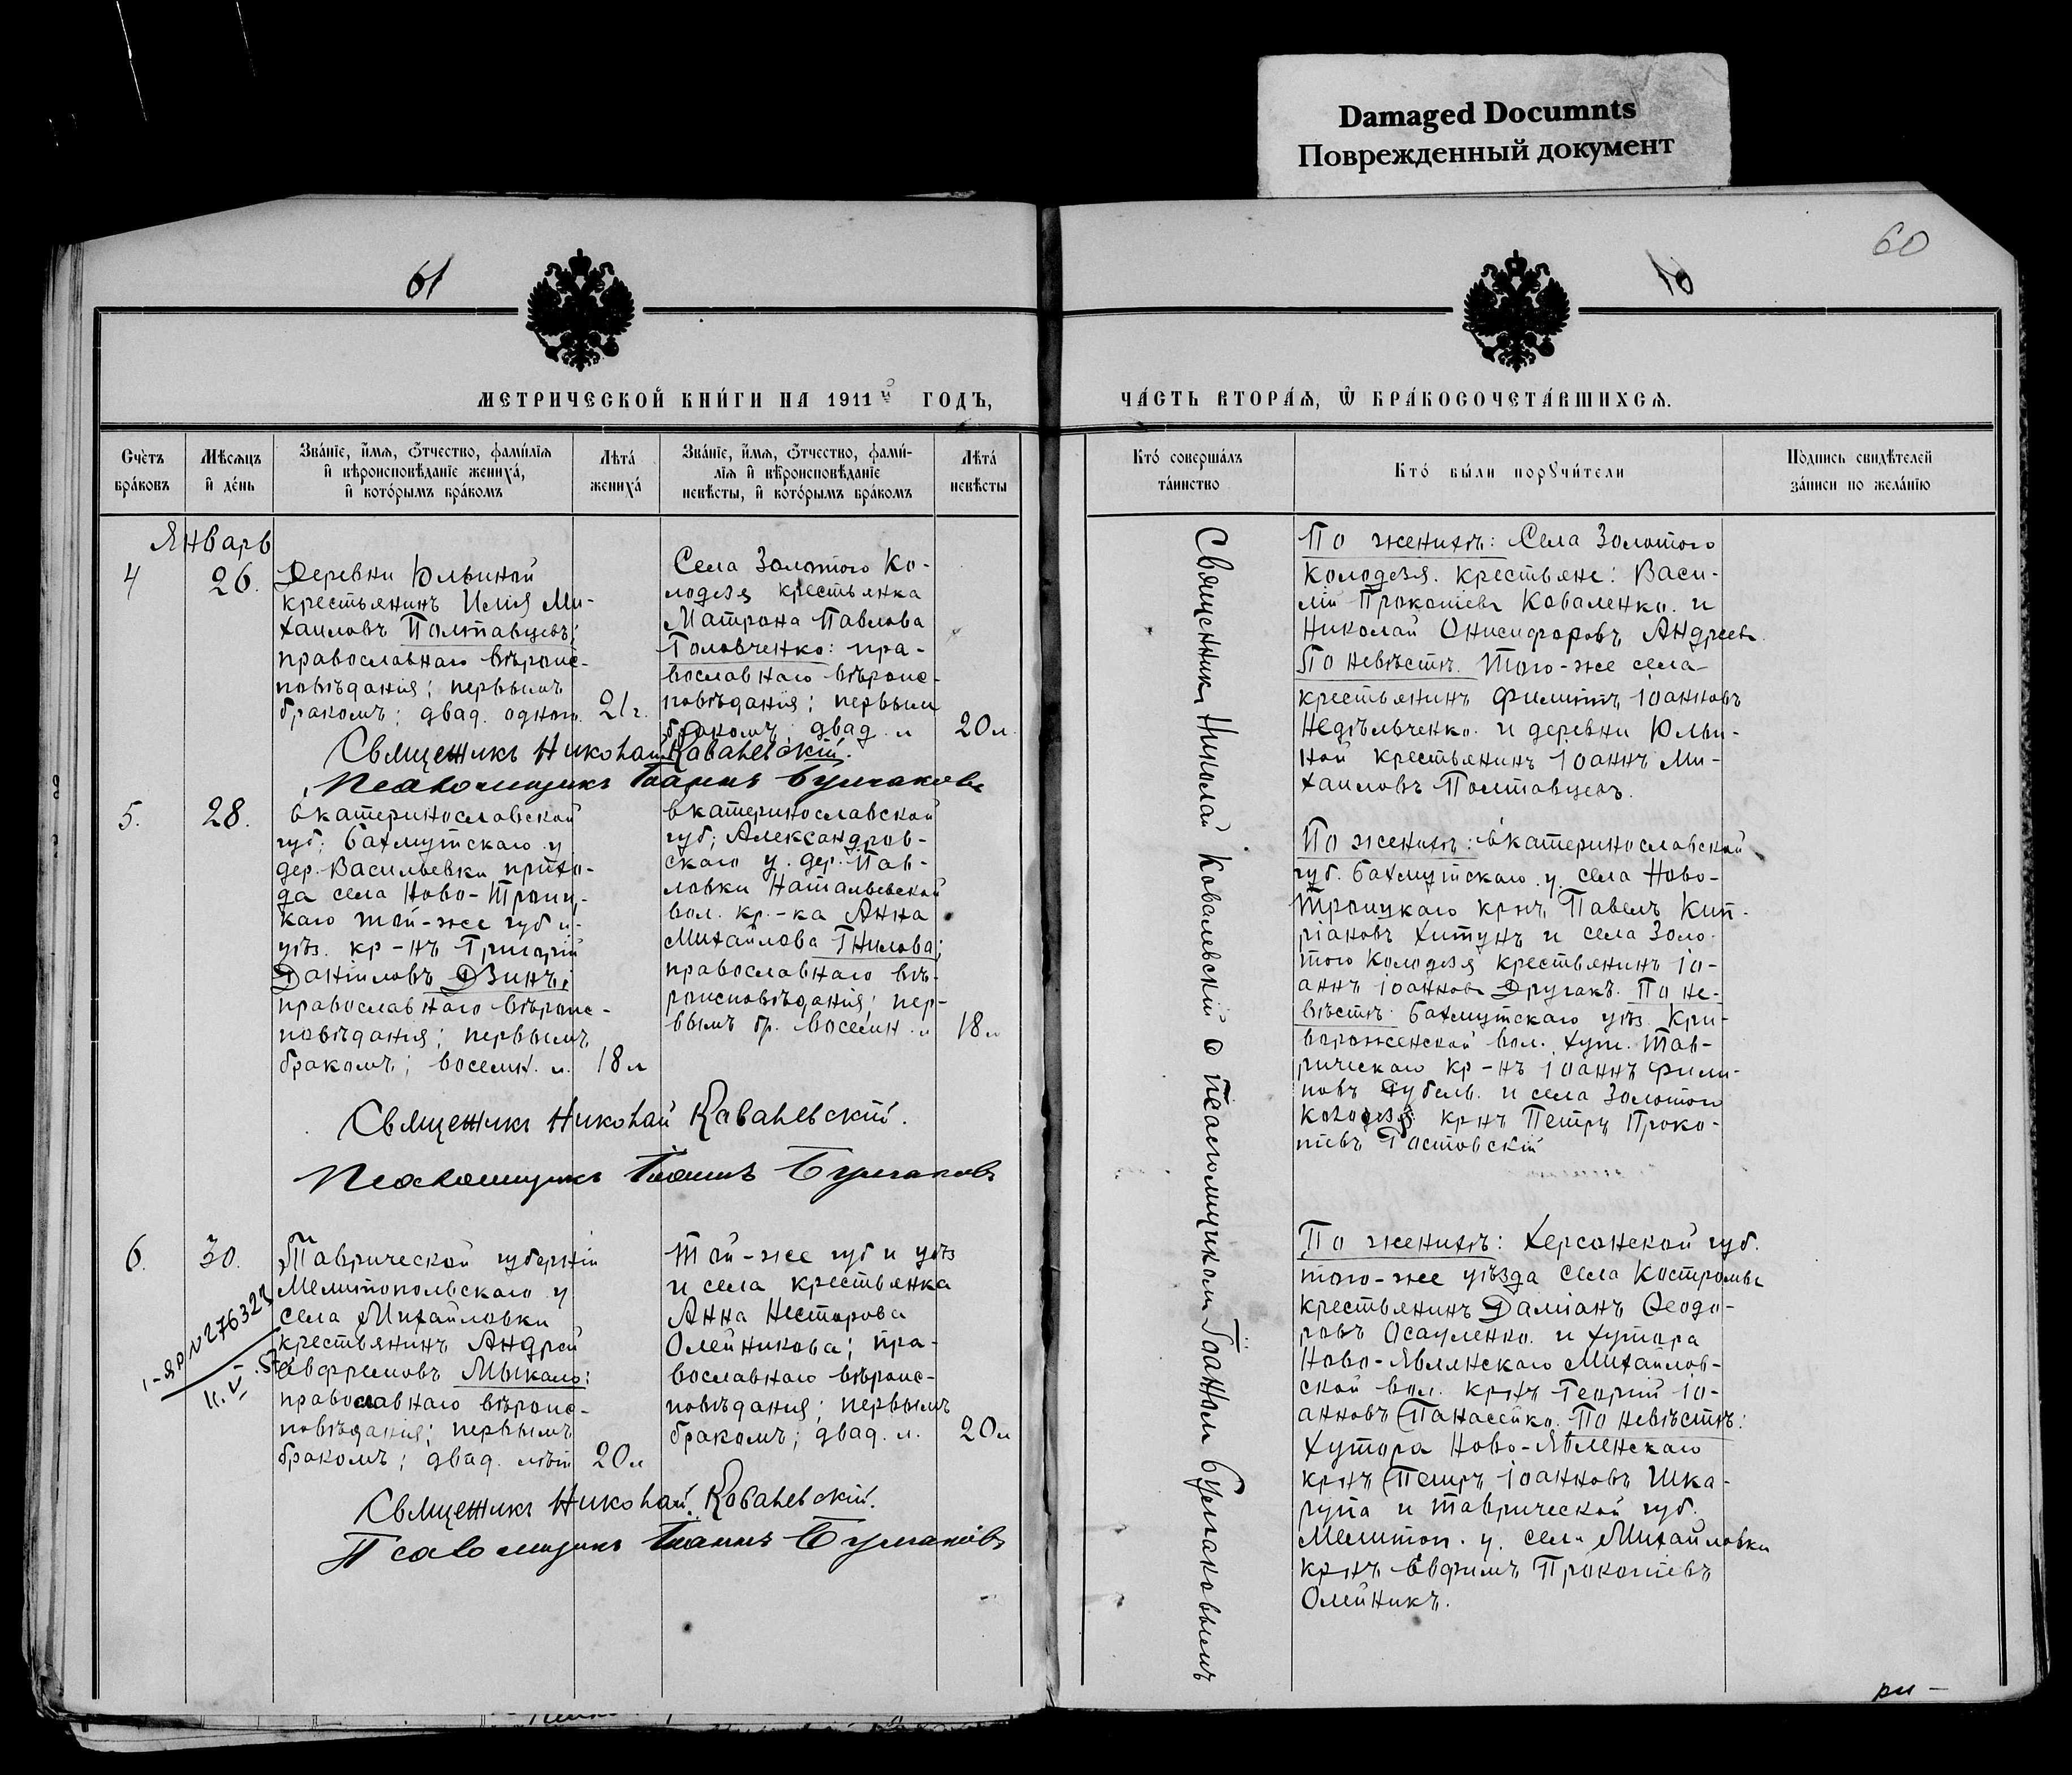 Damaged Documnts
Поврежденный документ
60
61
МЕТРИЧЕСКОЙ КНИ́ГИ НА 1911й ГОДЪ,
ЧА́СТЬ ВТОРА́Ѧ, Ѡ҆ БРА́КОСОЧЕТА́ВШИХСѦ.
Сче́тъ бра́ковъ
Мѣ́сѧцъ и҆ де́нь
Зва́нїе, и҆́мѧ, ѻ҆́тчество, фами́лїѧ
и҆ вѣроисповѣ́данїе жениха́,
и҆ кото́рымъ бра́комъ
Лѣ́та жениха́
Зва́нїе, и҆́мѧ, ѻ҆́тчество, фами́-
лїѧ и҆ вѣроисповѣ́данїе
невѣ́сты, и҆ кото́рымъ бра́комъ
Лѣ́та невѣ́сты
Кто́ соверша́лъ та́инство
Кто́ бы́ли порꙋчи́тели
По́дпись свидѣ́телей за́писи по жела́нїю
Январь
4
26.
Деревни Юльиной
крестьянинъ Илія Ми-
хаиловъ Полтавцевъ;
православнаго вѣроис-
повѣданія; первымъ
бракомъ; двад. одного.
21 г.
Села Золотого Ко-
лодезя крестьянка
Матрона Павлова
Головченко: пра-
вославнаго вѣроис-
повѣданія; первым
бракомъ; двад. л
20 л.
Священникъ Николай Ковалевскій.
Псаломщикъ Іоаннъ Булгаковъ
5.
28.
Екатеринославской
губ; Бахмутскаго у
дер. Васильевки прихо-
да села Ново-Троиц-
каго той-же губ и
уѣз. кр-нъ Григорій
Даніиловъ Дзинъ;
православнаго вѣроис-
повѣданія; первымъ
бракомъ; восемн. л.
18 л
Екатеринославской
губ; Александров-
скаго у. дер. Пав-
ловки Натальевской
вол. кр.-ка Анна
Михайлова Гнилова;
православнаго вѣ-
роисповѣданія; пер-
вымъ бр. восемн. л
18 л
Священникъ Николай Ковалевскій.
Псаломщикъ Іоаннъ Булгаковъ
6.
30.
Таврической губерніи
Мелитопольскаго у
села Михайловки
крестьянинъ Андрей
Евфремовъ Мыкало:
православнаго вѣроис-
повѣданія; первымъ
бракомъ; двад. лѣт
20 л
Той-же губ и уѣз
и села крестьянка
Анна Несторова
Олейникова; пра-
вославнаго вѣроис-
повѣданія; первымъ
бракомъ; двад. л.
20 л
Священникъ Николай Ковалевскій.
Псаломщикъ Іоаннъ Булгаковъ
Священникъ Николай Ковалевскій с псаломщикомъ Іоанномъ Булгаковымъ
По женихѣ: Села Золотого
Колодезя. крестьяне: Васи-
лій Прокопіевъ Коваленко. и
Николай Онисифоровъ Андреевъ
По невѣстѣ. Того-же села
крестьянинъ Филиппъ Іоанновъ
Недѣльченко. и деревни Юльи-
ной крестьянинъ Іоаннъ Ми-
хаиловъ Полтавцевъ.
По женихѣ: Екатеринославской
губ. Бахмутскаго у. села Ново-
Троицкаго крнъ Павелъ Кип-
ріановъ Хитунъ и села Золо-
того Колодезя крестьянинъ Іо-
аннъ Іоанновъ Другакъ. По не-
вѣстѣ: Бахмутскаго уѣз. Кри-
вороженской вол. хут. Тав-
рическаго кр-нъ Іоаннъ Фили-
повъ Дубель. и села Золотого
Колодезя крнъ Петръ Проко-
піевъ Ростовскій
По женихѣ: Херсонской губ.
того-же уѣзда села Костромы
крестьянинъ Даміанъ Ѳеодо-
ровъ Осауленко. и хутора
Ново-Явленскаго Михайлов-
ской вол. крнъ Георгій Іо-
анновъ Панасейко. По невѣстѣ:
Хутора Ново-Явленскаго
крнъ Петръ Іоанновъ Шка-
рупа и Таврической губ.
Мелитоп. у. села Михайловки
крнъ Евфимъ Прокопіевъ
Олейникъ.